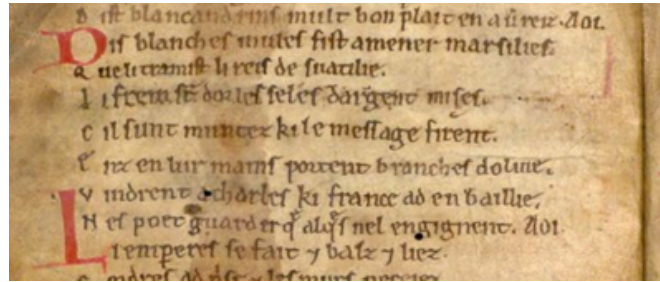 D ist blancandrins mult bon plait en aureiz. AOI.
Dis blanches mules fist amener marsilies.
Q ue li tramist li reis de suatilie.
L i frein sūt dor les seles dargent mises.
C il sunt muntez ki le message firent.
E nz en lur mains portent branches dolive.
V indrent a charles ki france ad en baillie.
N es poet guarder q̄ alq̄s nel engignent. AOI.
Li empereres se fait ⁊ balz ⁊ liez.
C ordres ad p̄se ⁊ les murs peceiez.